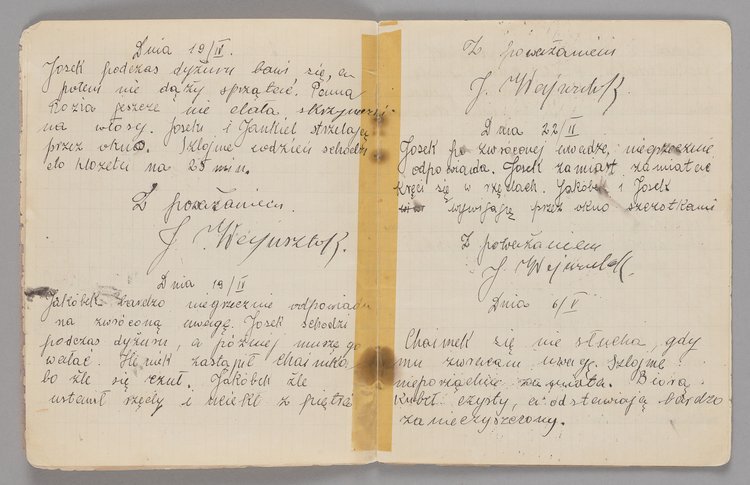 Dnia 19/IV.
Josek podczas dyżuru bawi się, a
potem nie dąży sprzątać. Panna
Rózia jeszcze nie dała skrzyneczki
na włosy. Josek i Jankiel strzelają
przez okno. Szlojme codzień schodzi
do klozetu na 25 min.
Z poważaniem
J. Wejnsztok.
Dnia 19/IV
Jakóbek bardzo niegrzecznie odpowiada
na zwróconą uwagę. Josek schodzi
podczas dyżuru, a później muszę go
wołać. Heniek zastąpił Chaimka,
bo źle się czuł. Jakóbek źle
ustawił rzędy i uciekł z piętra
Z poważaniem
J. Wejnsztok.
Dnia 22/II
Josek po zwróconej uwadze, niegrzecznie
odpowiada. Josek zamiast zamiatać
kręci się w rzędach. Jakóbek i Josek
wywijają przez okno szczotkami
Z poważaniem
J. Wejnsztok.
Dnia 6/V
Chaimek się nie słucha, gdy
mu zwracam uwagę. Szlojme
nieporządnie zamiata. Biorą
kubeł czysty, a odstawiają bardzo
zanieczyszczony.